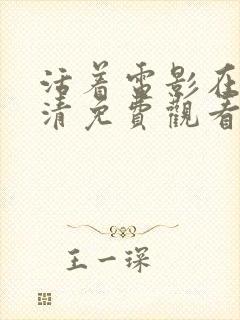 活着电影在
清免費觀看
王一琛